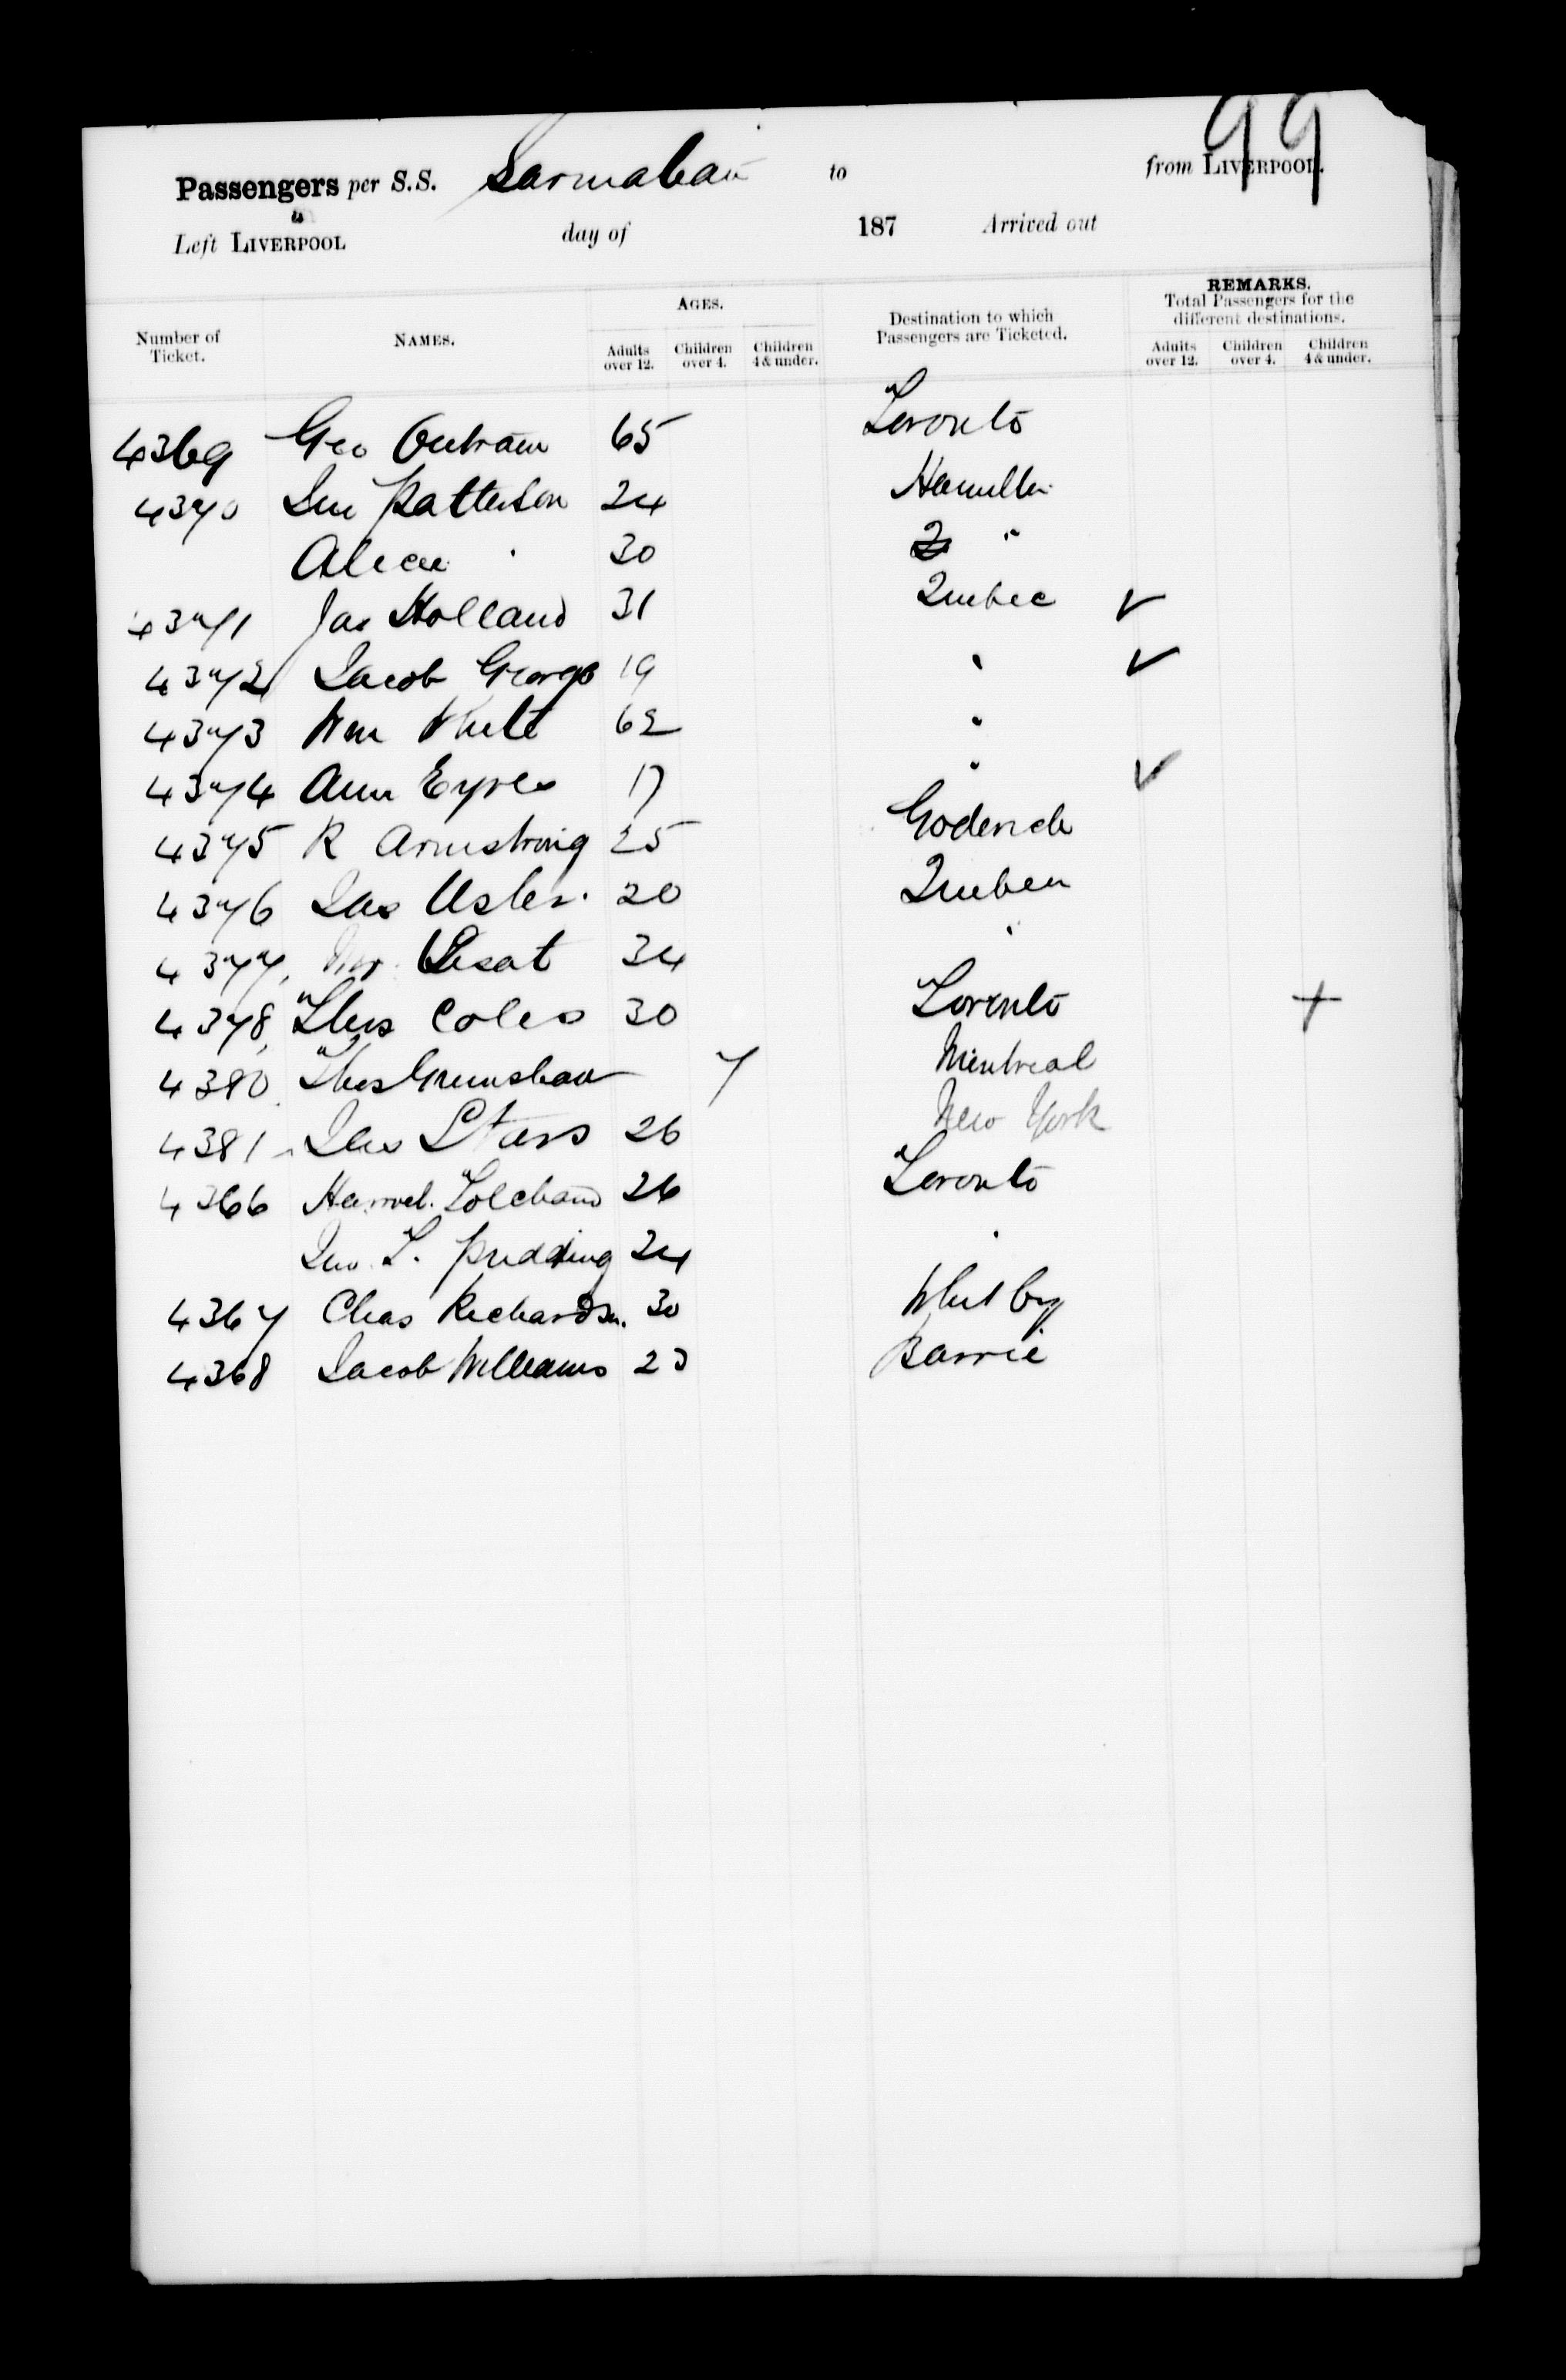 99
Passengers per S.S. Sarmatian to from LIVERPOOL.
Left LIVERPOOL day of 187 Arrived out
Number of Ticket. NAMES. AGES. Destination to which Passengers are Ticketed. REMARKS. Total Passengers for the different destinations.
Adults over 12. Children over 4. Children 4 & under. Adults over 12. Children over 4. Children 4 & under.
4369 Geo Outram 65 Toronto
4370 Jno Patterson 24 Hamilton
Alice " 30 "
4371 Jas Holland 31 Quebec ✓
4372 Jacob George 19 " ✓
4373 Wm White 62 "
4374 Ann Eyres 17 " ✓
4375 R Armstrong 25 Goderich
4376 Jas 20 Quebec
4377 34 "
4378 Thos Coles 30 Toronto +
4380 Thos Grimshaw 7 Montreal
4381 26 New York
4366 26 Toronto
Jno. T. Pudding 24 "
4367 Chas Richardson. 30 Whitby
4368 Jacob Williams 23 Barrie